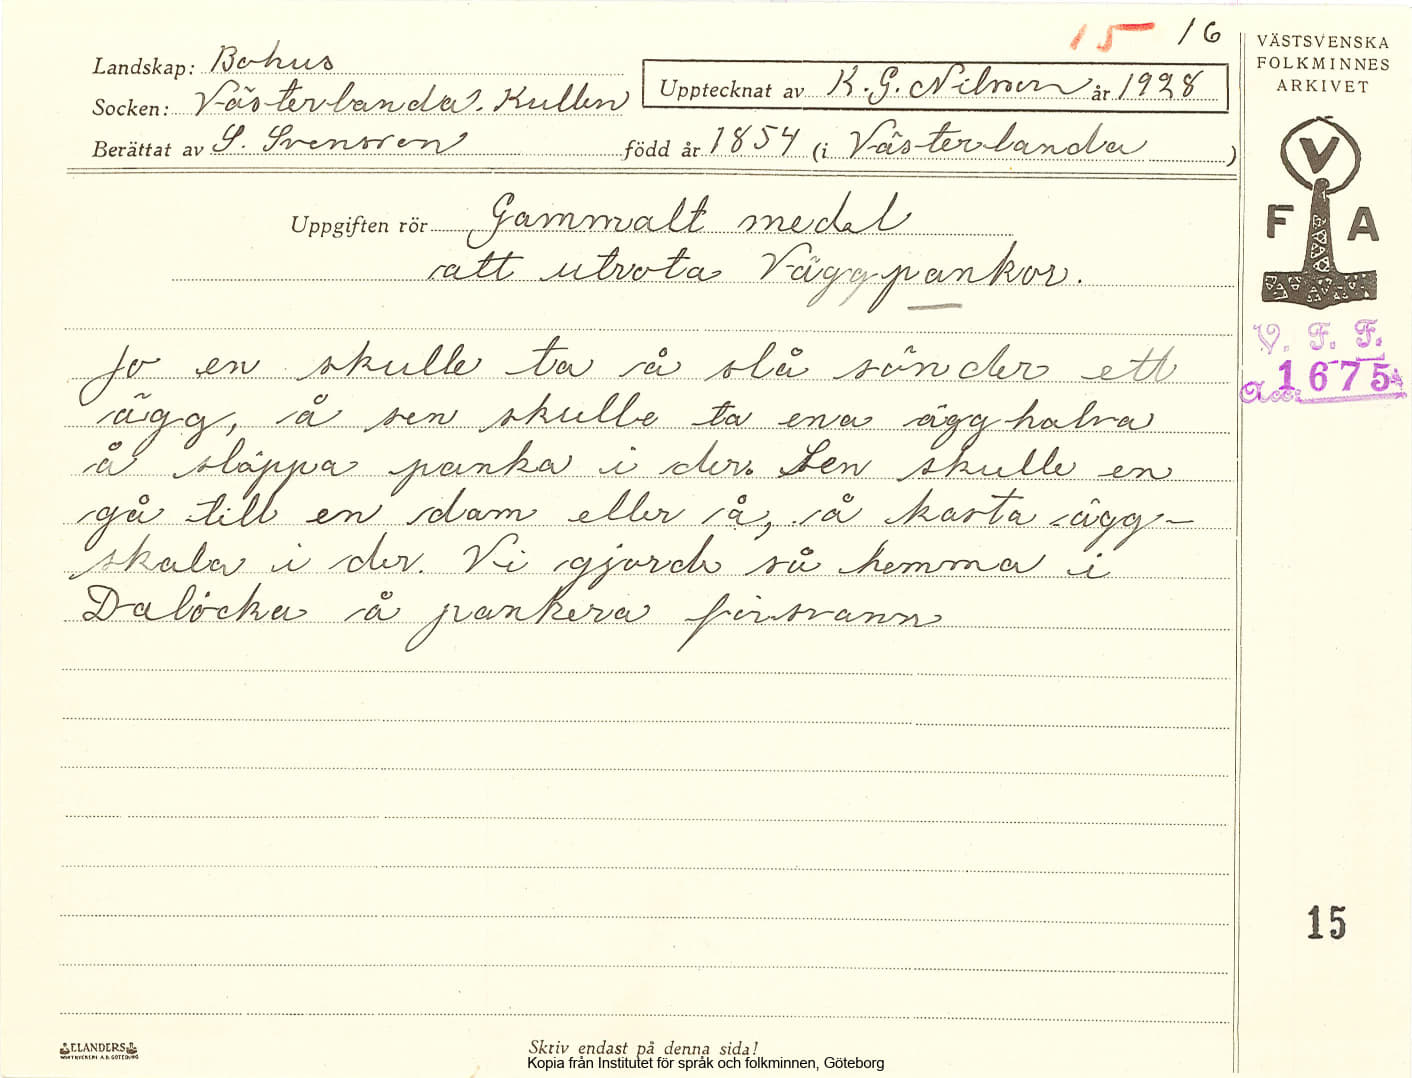 15 16
Landskap: Bohus
Socken: Västerlanda. Kullen
Upptecknat av K. G. Nilsson år 1928
Berättat av S. Svensson född år 1854 (i Västerlanda )
Uppgiften rör Gammalt medel
att utrota Väggpankor.
Jo en skulle ta å slå sönder ett
ägg, å sen skulle ta ena ägghalva
å släppa panka i der. Sen skulle en
gå till en dam eller å, å kasta ägg-
skala i der. Vi gjorde så hemma i
Dalöcka å pankera försvann
VÄSTSVENSKA
FOLKMINNES
ARKIVET
V
F A
V. F. F.
Acc: 1675
15
ELANDERS
BOKTRYCKERI A.B. GÖTEBORG
Skriv endast på denna sida!
Kopia från Institutet för språk och folkminnen, Göteborg